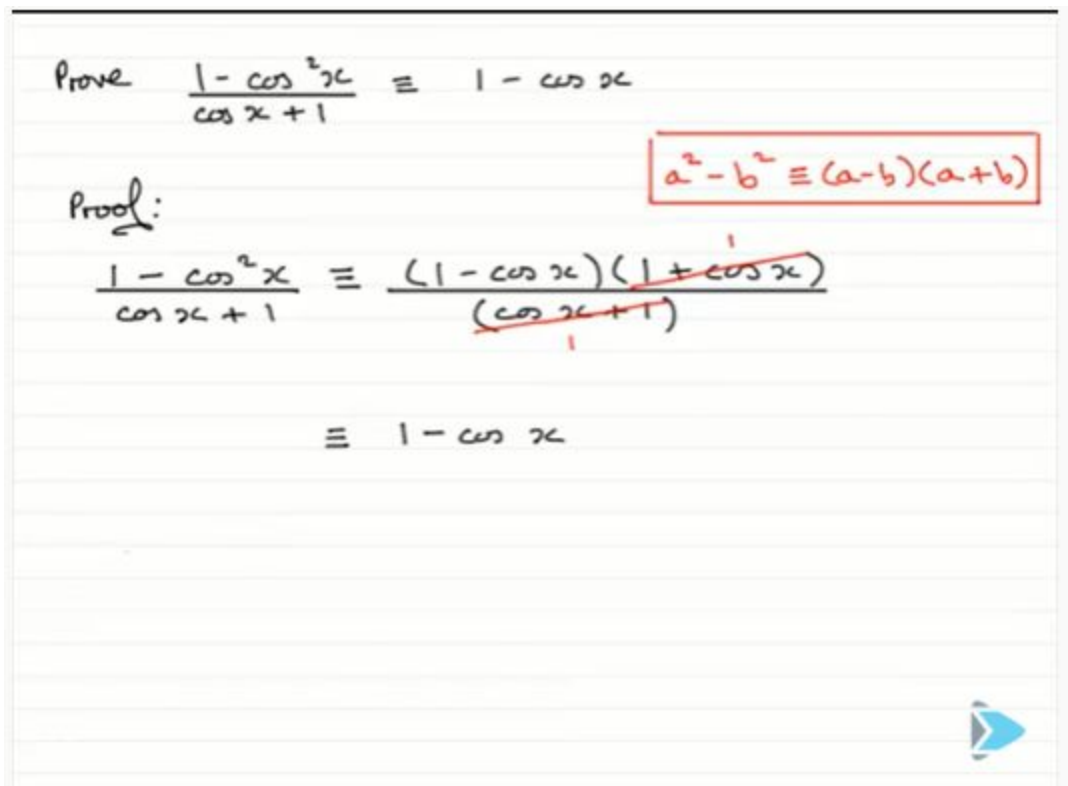 Prove (1 - cos²x)/(cos x + 1) ≡ 1 - cos x
a² - b² ≡ (a-b)(a+b)
Proof:
(1 - cos²x)/(cos x + 1) ≡ ((1 - cos x)(1 + cos x))/((cos x + 1))
1
1
≡ 1 - cos x